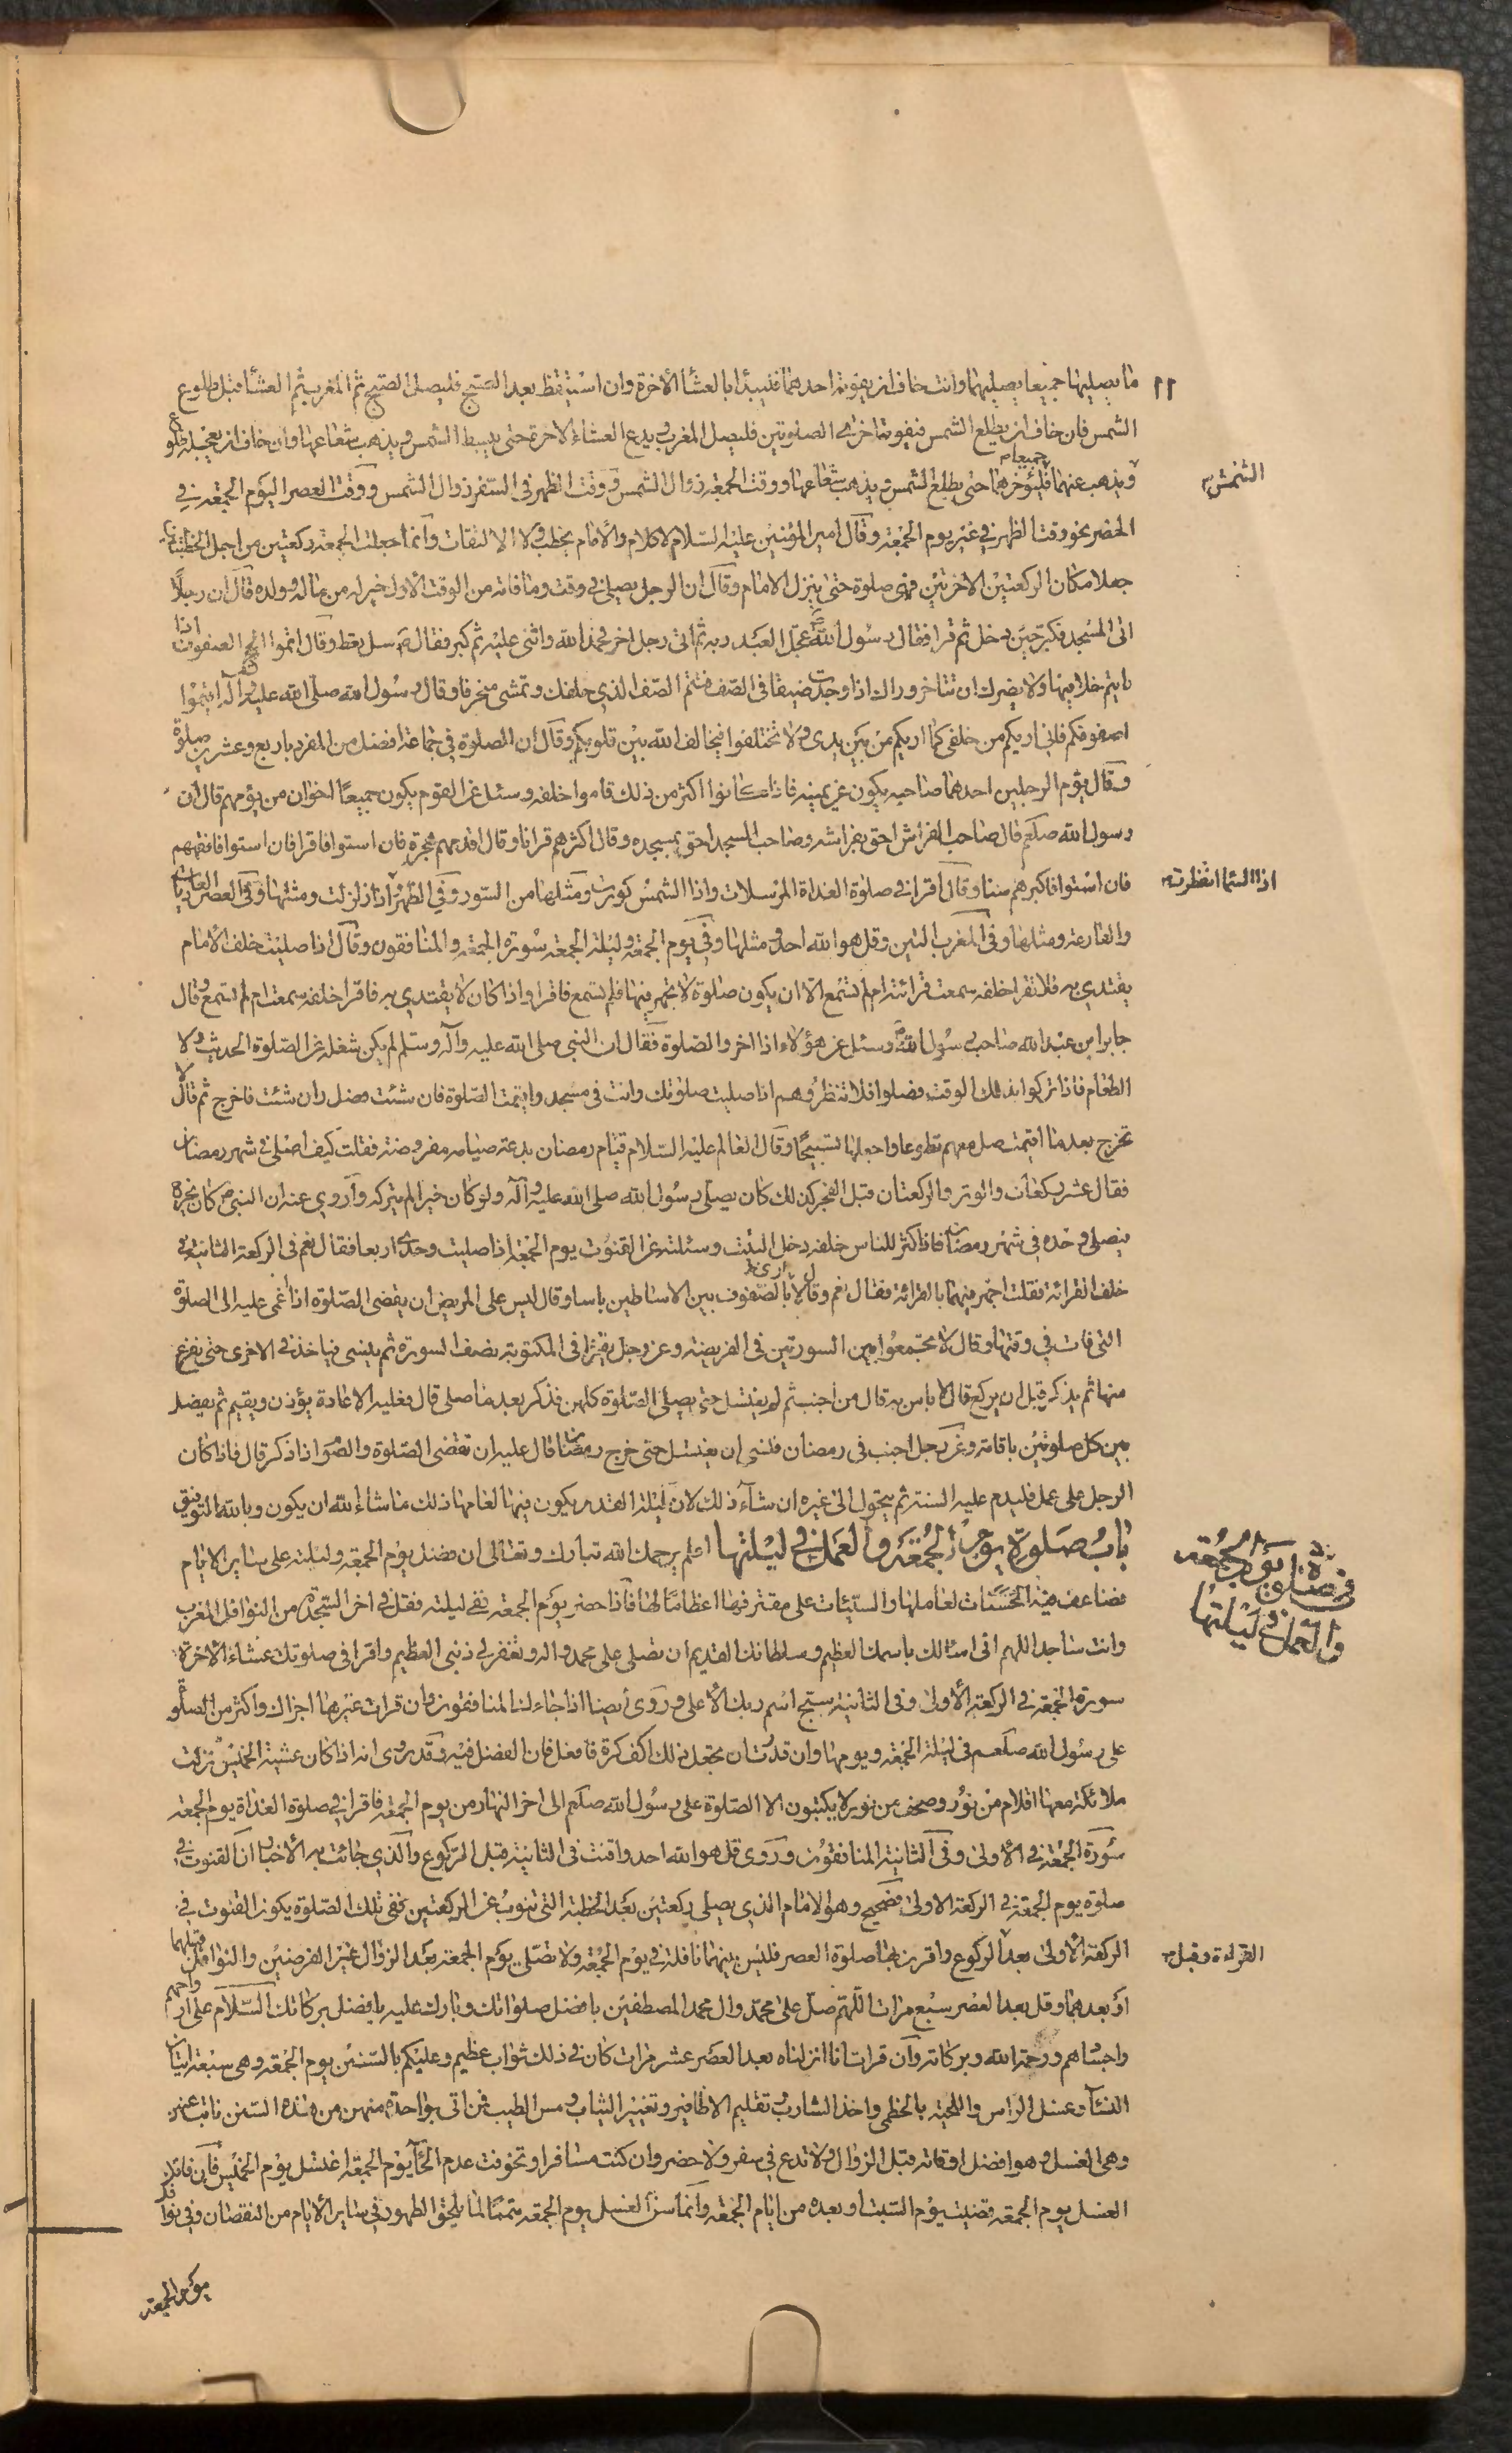 ١١
ما يصليهما جميعا يصليهما وانت خاف ان يفوته احدهما فليبدأ بالعشآء الآخرة وان استيقظ بعد الصبح فليصلى الصبح ثم المغرب ثم العشآء قبل طلوع
الشمس فان خاف ان يطلع الشمس فيفوته احدى الصلوتين فليصل المغرب ويدع العشاء الاخرة حتى يبسط الشمس ويذهب شعاعها وان خاف ان يعجله طلوع
الشمس
ويذهب عنهما فليؤخرهما جميعا حتى يطلع الشمس ويذهب شعاعها ووقت الجمعة زوال الشمس ووقت الظهر فى السفر زوال الشمس ووقت العصر اليوم الجمعة فى
الحضر نحو وقت الظهر فى غير يوم الجمعة وقال امير المؤمنين عليه السلام لا كلام والامام يخطب ولا الالتفات وانما جعلت الجمعة ركعتين من اجل الخطبتان
جعلا مكان الركعتين الاخرتين فهى صلوة حتى ينزل الامام وقال ان الرجل يصلى فى وقت وما فاته من الوقت الاول خير له من ماله وولده قال ان رجلاً
اتى المسجد فكبر حين دخل ثم قرا فقال رسول الله ص عجل العبد ربه ثم اتى رجل اخر فحمد الله واثنى عليه ثم كبر فقال ص سل تعط وقال اتموا الصفوف اذا
رايتم خللا فيها ولا يضرك ان تتاخر وراك اذا وجدت ضيقا فى الصف فتتم الصف الذى خلفك وتمشى منحرفا وقال رسول الله صلى الله عليه وآله اتيموا
صفوفكم فانى اريكم من خلفى كما اريكم من بين يدى ولا تختلفوا فيخالف الله بين قلوبكم وقال ان الصلوة فى جماعة افضل من المفرد باربع وعشرين صلوة
وقال يؤم الرجلين احدهما صاحبه يكون عن يمينه فاذا كانوا اكثر من ذلك قاموا خلفه وسئل عن القوم يكون جميعاً اخوان من يؤمهم قال ان
رسول الله صلعم قال صاحب الفراش احق بفراشه وصاحب المسجد احق بمسجده وقال اكثرهم قرانا وقال اقدمهم هجرة فان استووا فاقرا فان استووا فافقههم
اذا السما انفطرت
فان استووا فاكبرهم سنا وقال اقرا فى صلوة الغداة المرسلات واذا الشمس كورت ومثلهما من السور وفى الظهر اذا زلزلت ومثلها وفى العصر العاديات
والقارعة ومثلهما وفى المغرب التين وقل هو الله احد ومثلها وفى يوم الجمعة وليلة الجمعة سورة الجمعة والمنافقون وقال اذا صليت خلف الامام
يقتدى به فلا تقرا خلفه سمعت قرائته ام لم تسمع الا ان يكون صلوة لا يجهر فيها فلم تسمع فاقرا واذا كان لا يقتدى به فاقرا خلفه سمعت ام لم تسمع وقال
جابر ابن عبد الله صاحب رسول الله ص وسئل عن هؤلاء اذا اخروا الصلوة فقال ان النبى صلى الله عليه وآله وسلم لم يكن شغله عن الصلوة الحديث ولا
الطعام فاذا تركوا بذلك الوقت فصلوا فلا تنظروهم اذا صليت صلوتك وانت فى مسجد واقيمت الصلوة فان شئت فصل وان شئت فاخرج ثم قال لا
تخرج بعد ما اقيمت صل معهم تطوعا واجعلها تسبيحًا وقال العالم عليه السلام قيام رمضان بدعة صيامه مفروضة فقلت كيف اصلى فى شهر رمضان
فقال عشر ركعات والوتر والركعتان قبل الفجر كذلك كان يصلى رسول الله صلى الله عليه وآله ولو كان خيرا لم يتركه واروى عنه ان النبى ص كان يخرج
فيصلى وحده فى شهر رمضان فاذا كثر الناس خلفه دخل البيت وسئلته عن القنوت يوم الجمعة اذا صليت وحدى اربعا فقال نعم فى الركعة الثانية
خلف القرائة فقلت اجهر فيهما بالقرائة فقال نعم وقال لا ارى بالصفوف بين الاساطين باسا وقال ليس على المريض ان يقضى الصلوة اذا اغمى عليه الا الصلوة
التى فات فى وقتها وقال لا تجتمعوا بين السورتين فى الفريضة وعن رجل يقرا فى المكتوبة نصف السورة ثم ينسى فياخذ فى الاخرى حتى يفرغ
منها ثم يذكر قبل ان يركع قال لا باس به قال من اجنب ثم لم يغتسل حتى يصلى الصلوة كلهن فذكر بعد ما صلى قال فعليه الاعادة يؤذن ويقيم ثم يفصل
بين كل صلوتين باقامة وعن رجل اجنب فى رمضان فنسى ان يغتسل حتى خرج رمضان قال عليه ان تقضى الصلوة والصوم اذا ذكر قال فاذا كان
الرجل على عمل فليدم عليه السنة ثم يتحول الى غيره ان شآء ذلك لان ليلة القدر يكون فيها لعامها ذلك ما شآء الله ان يكون وبالله التوفيق
فى صلوة يوم الجمعة
والعمل فى ليلتها
باب صلوة يوم الجمعة والعمل فى ليلتها اعلم يرحمك الله تبارك وتعالى ان فضل يوم الجمعة وليلته على ساير الايام
فضاعف فيه الحسنات لعاملها والسيئات على مقترفها اعظامًا لها فاذا حضر يوم الجمعة ففى ليلته فقل فى اخر السجدة من النوافل المغرب
وانت ساجد اللهم انى اسالك باسمك العظيم وسلطانك القديم ان تصلى على محمد واله وتغفر لى ذنبى العظيم واقرا فى صلوتك عشاء الاخرة
سورة الجمعة فى الركعة الاولى وفى الثانية سبح اسم ربك الاعلى وروى ايضا اذا جاءك المنافقون وان قرات غيرهما اجزاك واكثر من الصلوة
على رسول الله صلعم فى ليلة الجمعة ويومها وان قدرت ان تجعل ذلك الف كرة فافعل فان الفضل فيه وقد روى انه اذا كان عشية الخميس نزلت
ملائكة معها اقلام من نور وصحف من نور لا يكتبون الا الصلوة على رسول الله صلعم الى اخر النهار من يوم الجمعة فاقرا فى صلوة الغداة يوم الجمعة
سورة الجمعة فى الاولى وفى الثانية المنافقون وروى قل هو الله احد واقنت فى الثانية قبل الركوع والذى جائت به الاخبار ان القنوت فى
صلوة يوم الجمعة فى الركعة الاولى فصحيح وهو الامام الذى يصلى ركعتين بعد الخطبة التى تنوب عن الركعتين ففى تلك الصلوة يكون القنوت فى
القراءة وقبل
الركعة الاولى بعد الركوع واقرن بها صلوة العصر فليس بينهما نافلة فى يوم الجمعة ولا تصلى يوم الجمعة بعد الزوال غير الفرضين والنوافل قبلهما
او بعدهما وقل بعد العصر سبع مرات اللهم صل على محمد وال محمد المصطفين بافضل صلواتك وبارك عليه بافضل بركاتك السلام على ارواحهم
واجسادهم ورحمة الله وبركاته وان قرات انا انزلناه بعد العصر عشر مرات كان فى ذلك ثواب عظيم وعليكم بالسنين يوم الجمعة وهى سبعة اتيان
النسآء وغسل الراس واللحية بالخطمى واخذ الشارب وتقليم الاظافير وتغيير الثياب ومس الطيب فمن اتى بواحدة منهن من هذه السنن نابت عنهن
وهى الغسل وهو افضل اوقاته قبل الزوال ولا تدع فى سفر ولا حضر وان كنت مسافرا وتخوفت عدم المآء يوم الجمعة اغتسل يوم الخميس فان فاتك
الغسل يوم الجمعة قضيت يوم السبت او بعده من ايام الجمعة وانما سن الغسل يوم الجمعة متممًا لما يلحق الطهور فى ساير الايام من النقصان وفى نوافل
يوم الجمعة